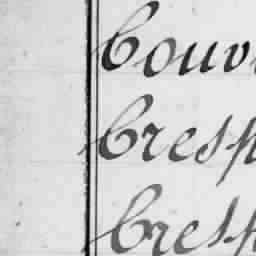 Couv
Cresp
Cresp